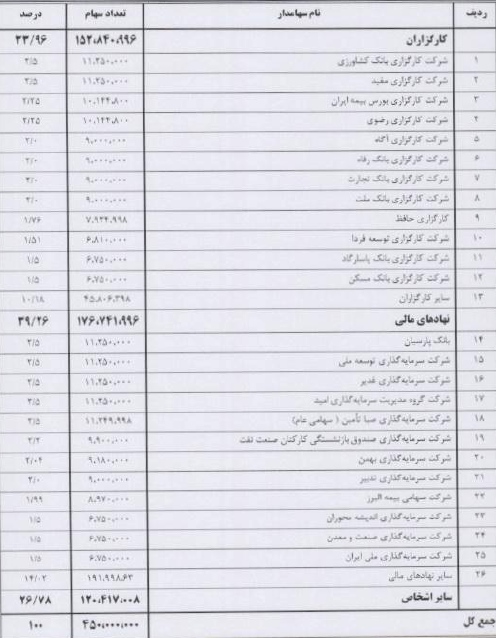 ردیف نام سهامدار تعداد سهام درصد
کارگزاران ۱۵۲،۸۴۰،۹۹۶ ۳۳/۹۶
۱ شرکت کارگزاری بانک کشاورزی ۱۱،۲۵۰،۰۰۰ ۲/۵
۲ شرکت کارگزاری مفید ۱۱،۲۵۰،۰۰۰ ۲/۵
۳ شرکت کارگزاری بورس بیمه ایران ۱۰،۱۴۴،۸۰۰ ۲/۲۵
۴ شرکت کارگزاری رضوی ۱۰،۱۴۴،۸۰۰ ۲/۲۵
۵ شرکت کارگزاری آگاه ۹،۰۰۰،۰۰۰ ۲/۰
۶ شرکت کارگزاری بانک رفاه ۹،۰۰۰،۰۰۰ ۲/۰
۷ شرکت کارگزاری بانک تجارت ۹،۰۰۰،۰۰۰ ۲/۰
۸ شرکت کارگزاری بانک ملت ۹،۰۰۰،۰۰۰ ۲/۰
۹ کارگزاری حافظ ۷،۹۳۴،۹۹۸ ۱/۷۶
۱۰ شرکت کارگزاری توسعه فردا ۶،۸۱۰،۰۰۰ ۱/۵۱
۱۱ شرکت کارگزاری بانک پاسارگاد ۶،۷۵۰،۰۰۰ ۱/۵
۱۲ شرکت کارگزاری بانک مسکن ۶،۷۵۰،۰۰۰ ۱/۵
۱۳ سایر کارگزاران ۴۵،۸۰۶،۳۹۸ ۱۰/۱۸
نهادهای مالی ۱۷۶،۷۴۱،۹۹۶ ۳۹/۲۶
۱۴ بانک پارسیان ۱۱،۲۵۰،۰۰۰ ۲/۵
۱۵ شرکت سرمایه‌گذاری توسعه ملی ۱۱،۲۵۰،۰۰۰ ۲/۵
۱۶ شرکت سرمایه‌گذاری غدیر ۱۱،۲۵۰،۰۰۰ ۲/۵
۱۷ شرکت گروه مدیریت سرمایه‌گذاری امید ۱۱،۲۵۰،۰۰۰ ۲/۵
۱۸ شرکت سرمایه‌گذاری صبا تأمین ( سهامی عام) ۱۱،۲۴۹،۹۹۸ ۲/۵
۱۹ شرکت سرمایه‌گذاری صندوق بازنشستگی کارکنان صنعت نفت ۹،۹۰۰،۰۰۰ ۲/۲
۲۰ شرکت سرمایه‌گذاری بهمن ۹،۱۸۰،۰۰۰ ۲/۰۴
۲۱ شرکت سرمایه‌گذاری تدبیر ۹،۰۰۰،۰۰۰ ۲/۰
۲۲ شرکت سهامی بیمه البرز ۸،۹۷۰،۰۰۰ ۱/۹۹
۲۳ شرکت سرمایه‌گذاری اندیشه محوران ۶،۷۵۰،۰۰۰ ۱/۵
۲۴ شرکت سرمایه‌گذاری صنعت و معدن ۶،۷۵۰،۰۰۰ ۱/۵
۲۵ شرکت سرمایه‌گذاری ملی ایران ۶،۷۵۰،۰۰۰ ۱/۵
۲۶ سایر نهادهای مالی ۱۴/۰۲
سایر اشخاص ۱۲۰،۴۱۷،۰۰۸ ۲۶/۷۸
جمع کل ۴۵۰،۰۰۰،۰۰۰ ۱۰۰